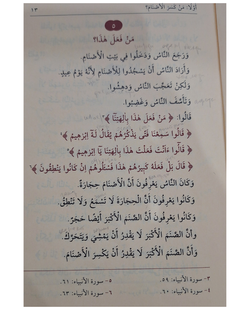 أوّلًا: مَنْ كَسَرَ الْأَصْنَامَ؟ ١٣
٥
مَنْ فَعَلَ هٰذَا؟
وَرَجَعَ النَّاسُ وَدَخَلُوا فِي بَيْتِ الْأَصْنَامِ.
وَأَرَادَ النَّاسُ أَنْ يَسْجُدُوا لِلْأَصْنَامِ لِأَنَّهُ يَوْمُ عِيدٍ.
وَلٰكِنْ تَعَجَّبَ النَّاسُ وَدَهِشُوا.
وَتَأَسَّفَ النَّاسُ وَغَضِبُوا.
قَالُوا: ﴿ مَنْ فَعَلَ هٰذَا بِآلِهَتِنَا ﴾٣
﴿ قَالُوا سَمِعْنَا فَتًى يَذْكُرُهُمْ يُقَالُ لَهُ إِبْرٰهِيمُ ﴾٤
﴿ قَالُوا ءَأَنْتَ فَعَلْتَ هٰذَا بِآلِهَتِنَا يٰٓإِبْرٰهِيمُ ﴾
﴿ قَالَ بَلْ فَعَلَهُ كَبِيرُهُمْ هٰذَا فَسْـَٔلُوهُمْ إِنْ كَانُوا يَنْطِقُونَ ﴾
وَكَانَ النَّاسُ يَعْرِفُونَ أَنَّ الْأَصْنَامَ حِجَارَةٌ.
وَكَانُوا يَعْرِفُونَ أَنَّ الْحِجَارَةَ لَا تَسْمَعُ وَلَا تَنْطِقُ.
وَكَانُوا يَعْرِفُونَ أَنَّ الصَّنَمَ الْأَكْبَرَ أَيْضًا حَجَرٌ.
وَأَنَّ الصَّنَمَ الْأَكْبَرَ لَا يَقْدِرُ أَنْ يَمْشِيَ وَيَتَحَرَّكَ.
وَأَنَّ الصَّنَمَ الْأَكْبَرَ لَا يَقْدِرُ أَنْ يَكْسِرَ الْأَصْنَامَ.
٣- سورة الأنبياء: ٥٩. ٥- سورة الأنبياء: ٦١.
٤- سورة الأنبياء: ٦٠. ٦- سورة الأنبياء: ٦٣.